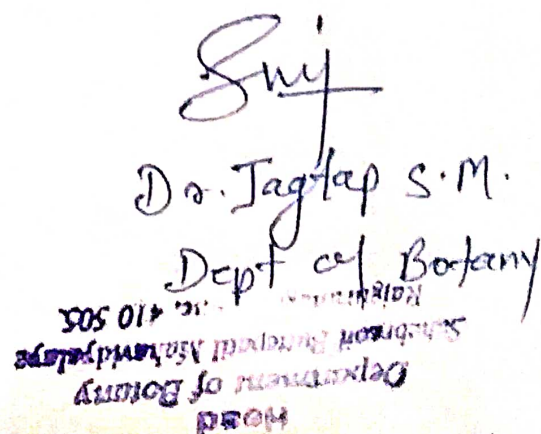 Dr. Jagtap S.M.
Dept of Botany
Head
Department of Botany
Mahavidyalaya
410 505.